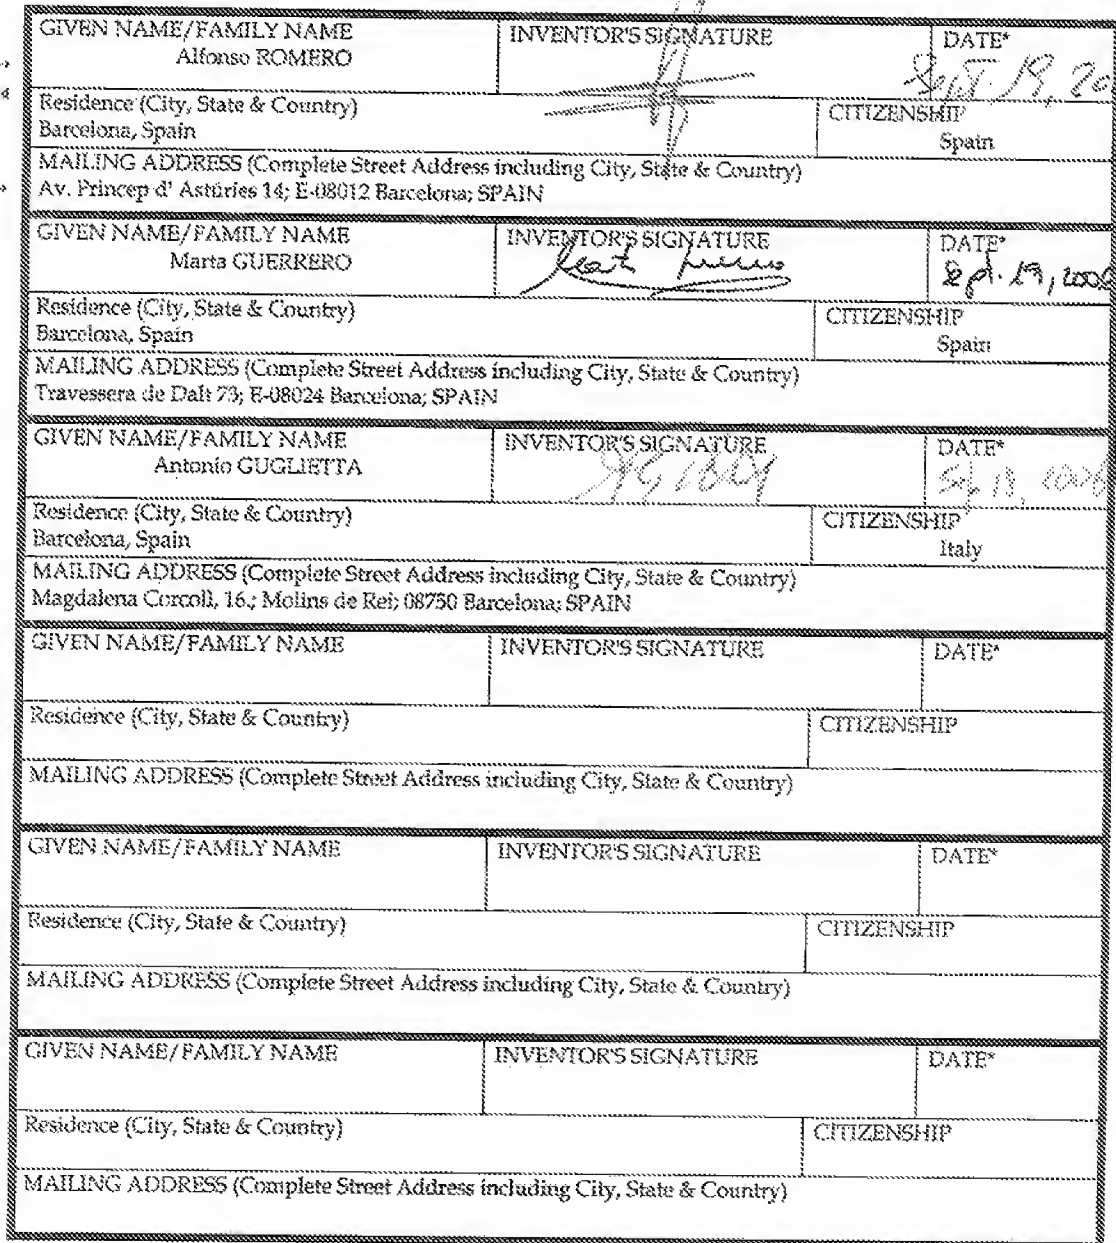 GIVEN NAME/FAMILY NAME INVENTOR'S SIGNATURE DATE*
Alfonso ROMERO Sept. 19, 20
Residence (City, State & Country) CITIZENSHIP
Barcelona, Spain Spain
MAILING ADDRESS (Complete Street Address including City, State & Country)
Av. Princep d' Astúries 14; E-08012 Barcelona; SPAIN
GIVEN NAME/FAMILY NAME INVENTOR'S SIGNATURE DATE*
Marta GUERRERO Sept. 19, 2006
Residence (City, State & Country) CITIZENSHIP
Barcelona, Spain Spain
MAILING ADDRESS (Complete Street Address including City, State & Country)
Travessera de Dalt 73; E-08024 Barcelona; SPAIN
GIVEN NAME/FAMILY NAME INVENTOR'S SIGNATURE DATE*
Antonio GUGLIETTA Sep 19, 2006
Residence (City, State & Country) CITIZENSHIP
Barcelona, Spain Italy
MAILING ADDRESS (Complete Street Address including City, State & Country)
Magdalena Corcoll, 16.; Molins de Rei; 08750 Barcelona; SPAIN
GIVEN NAME/FAMILY NAME INVENTOR'S SIGNATURE DATE*
Residence (City, State & Country) CITIZENSHIP
MAILING ADDRESS (Complete Street Address including City, State & Country)
GIVEN NAME/FAMILY NAME INVENTOR'S SIGNATURE DATE*
Residence (City, State & Country) CITIZENSHIP
MAILING ADDRESS (Complete Street Address including City, State & Country)
GIVEN NAME/FAMILY NAME INVENTOR'S SIGNATURE DATE*
Residence (City, State & Country) CITIZENSHIP
MAILING ADDRESS (Complete Street Address including City, State & Country)